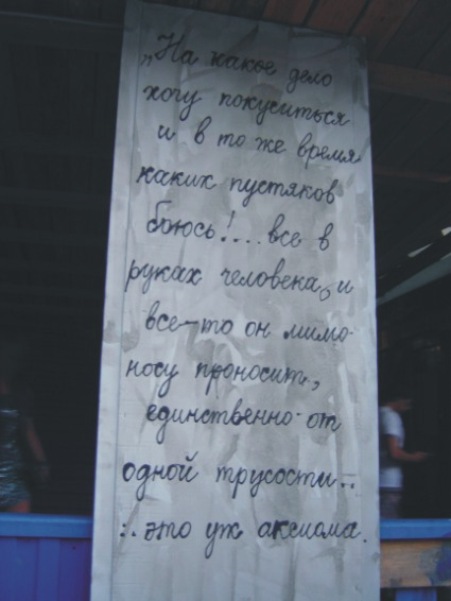 „На какое дело
хочу покуситься
и в то же время
каких пустяков
боюсь!....все в
руках человека, и
все-то он мимо-
носу проносит,
единственно-от
одной трусости..
:.это уж аксиома.